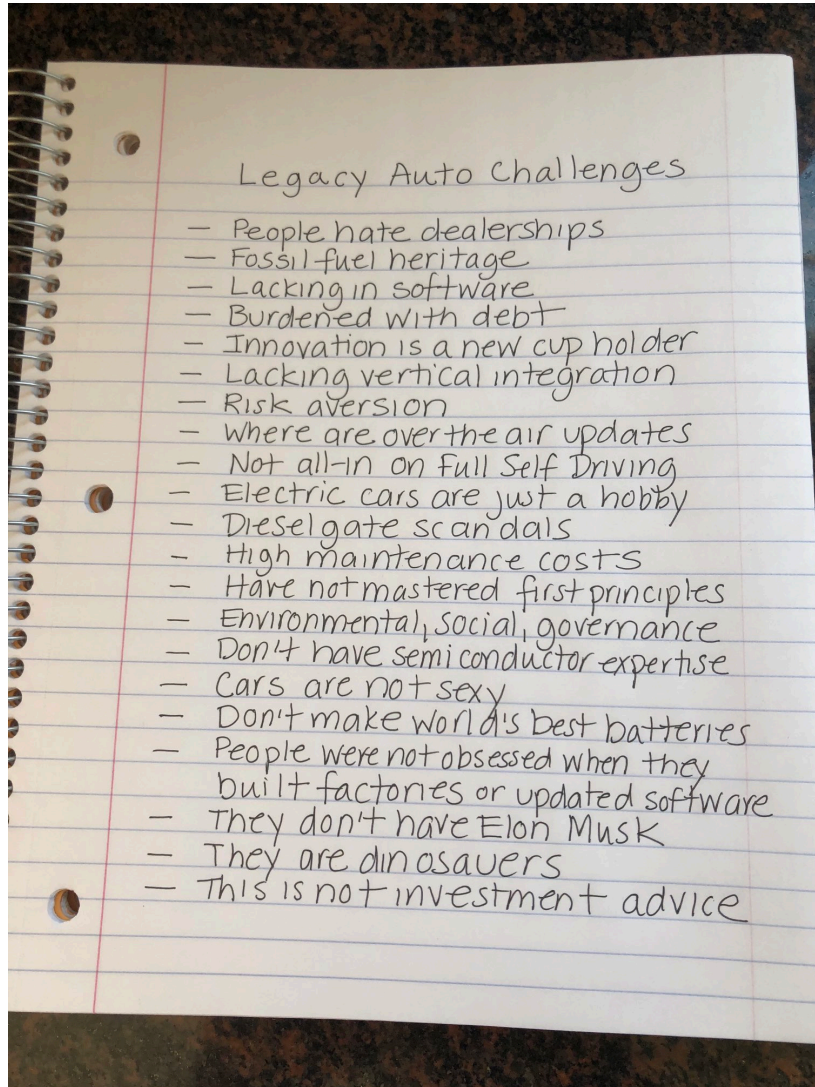 Legacy Auto Challenges
— People hate dealerships
— Fossil fuel heritage
— Lacking in software
— Burdened with debt
— Innovation is a new cup holder
— Lacking vertical integration
— Risk aversion
— Where are over the air updates
— Not all-in on Full Self Driving
— Electric cars are just a hobby
— Dieselgate scandals
— High maintenance costs
— Have not mastered first principles
— Environmental, social, governance
— Don't have semiconductor expertise
— Cars are not sexy
— Don't make world's best batteries
— People were not obsessed when they
built factories or updated software
— They don't have Elon Musk
— They are dinosauers
— This is not investment advice